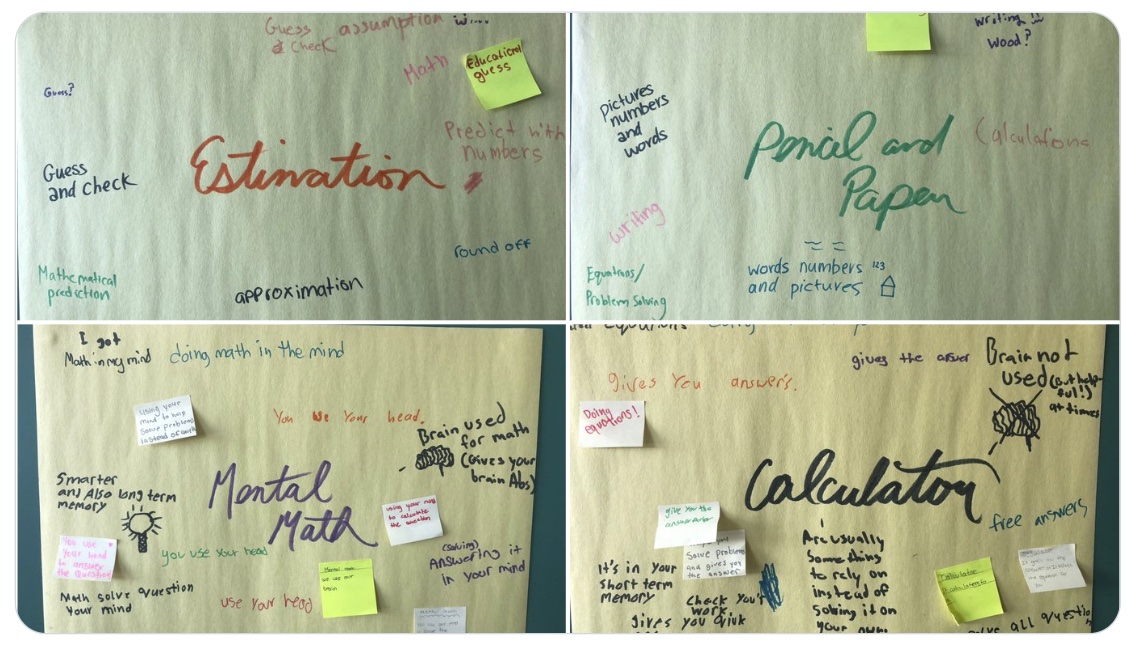 Guess assumption
& Check
Math
Educational
guess
Guess?
Predict with
numbers
Estimation
Guess
and check
round off
Mathematical
prediction
approximation
writing !!
wood?
pictures
numbers
and
words
Pencil and
Paper
Calculations
writing
Equations/
Problem Solving
words numbers 123
and pictures
I got
Math in my mind
doing math in the mind
Using your
mind to help
solve problems
instead of
You use Your head.
Brain used
for math
(Gives your
brain Abs)
Smarter
and Also long term
memory
Mental
Math
using your
to calculate
the question
You use
your head
to answer
the question
you use your head
(solving)
Answering it
in your mind
Math solve question
your mind
use Your head
Mental math
we use our
brain
equations
gives the answer
Brain not
used (but help-
ful!)
at times
gives You answer's.
Doing
equations!
Calculator
free answers
give you the
answer
Solve problems
and gives you
the answer
Are usually
something
to rely on
instead of
solving it on
your own.
It's in your
short term
memory
Check your
work.
gives you
all